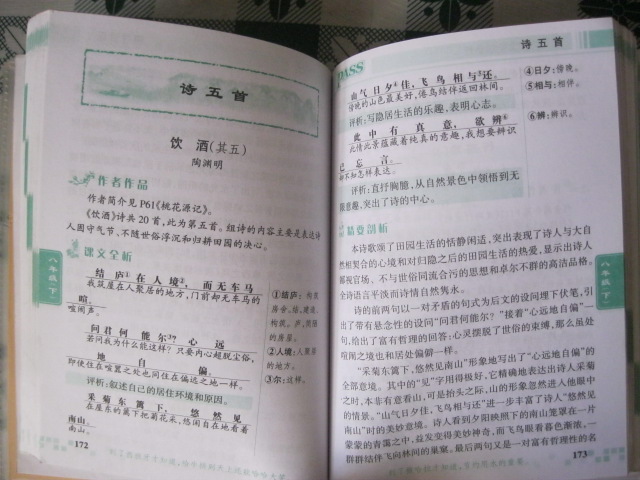 诗五首
饮 酒(其五)
陶渊明
作者作品
作者简介见 P61《桃花源记》。
《饮酒》诗共 20 首,此为第五首。组诗的内容主要是表达诗
人固守气节、不随世俗浮沉和归耕田园的决心。
课文全析
结庐①在人境②,而无车马
我筑屋在人聚居的地方,门前却无车马的
喧。
喧闹声。
问君何能尔③?心远
若问我为什么能这样?只要内心超脱尘俗,
地自偏。
即使住在喧嚣之处也同住在偏远之地一样。
评析:叙述自己的居住环境和原因。
采菊东篱下,悠然见
在屋东的篱下把菊花采,悠闲自在地看着
南山。
南山。
①结庐:
房舍。结,建造、
构筑。庐,
的房屋。
②人境:人聚居
的地方。
③尔:这样。
八年级(下)
172
诗五首
PASS
山气日夕④佳,飞鸟相与⑤还。
傍晚的山色最美好,倦鸟结伴返回林间。
评析:写隐居生活的乐趣,表明心志。
此中有真意,欲辨⑥
此情此景蕴藏着纯真的意趣,我想要辨识
已忘言。
却不知怎样表达。
评析:直抒胸臆,从自然景色中领悟到无
限意趣,突出了诗的中心。
④日夕:傍晚。
⑤相与:相伴。
⑥辨:辨识。
精要剖析
本诗歌颂了田园生活的恬静闲适,突出表现了诗人与大
自然相契合的心境和对归隐之后的田园生活的热爱,显示出诗人
鄙视官场、不与世俗同流合污的思想和卓尔不群的高洁品格。
全诗语言平淡而诗情自然隽永。
诗的前两句以一对矛盾的句式为后文的设问埋下伏笔,引
出了带有悬念性的设问“问君何能尔?”接着“心远地自偏”的
句,给出了富有哲理的回答:心灵摆脱了世俗的束缚,那么虽处
喧闹之境也和居处偏僻一样。
“采菊东篱下,悠然见南山”形象地写出了“心远地自偏”的
全部意境。其中的“见”字用得极好,它精确地表达出诗人采菊
之时,本非有意看山,可是抬头之际,山的形象忽然进入他眼中
的情景。“山气日夕佳,飞鸟相与还”进一步丰富了诗人“悠然见南
山”时的美妙意境。诗人看到夕阳映照下的南山笼罩在一片
蒙蒙的青霭之中,益发变得美妙神奇,而飞鸟眼看暮色渐浓,一
群群结伴飞向林间的巢窠。最后两句又是一对富有哲理性的名
八年级(下)
173